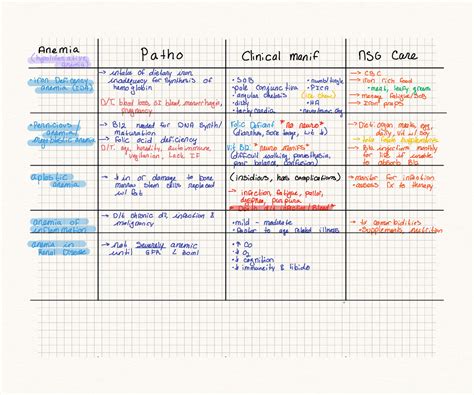 Anemia
(hypoproliferative
anemia)
Patho
Clinical manif
NSG Care
• iron Deficiency
anemia (IDA)
→ intake of dietary iron
inadequate for synthesis of
hemoglobin
D/T: blood loss, GI bleed, menorrhagia,
pregnancy
• SOB
• pale conjunctiva
• angular cheilosis
• dizzy
• tachycardia
• numb/tingle
• PICA
(ice chew)
• HA
→ CBC
→ iron rich food
• meat, leafy greens
→ manage fatigue/SOB
→ iron preps
• Pernicious
anemia /
megaloblastic anemia
→ B12 needed for DNA Synth/
maturation
→ folic acid deficiency
D/T: age, heredity, autoimmune,
vegitarian, Lack IF
Folic Deficient no neuro
(diarrhea, sore tongue, wt ↓)
Vit B12 neuro manifs
(difficult walking, paresthesia,
poor balance, confusion)
→ Diet: organ meats, egg,
daily, vit B/ soy
→ B12 injection monthly
for IF
or absorb B12
aplastic
anemia
→ ↓ in or damage to bone
marrow stem cells replaced
w/ fat
(insidious, has complications)
→ infection, fatigue, pallor,
dyspnea, purpura
→ monitor for infection
→ assess Dx to therapy
anemia of
inflammation
→ D/t chronic dz, infection &
malignancy
• mild - moderate
• similar to age related illness
→ tx comorbidities
→ Supplements, nutrition
anemia in
Renal Disease
→ not severely anemic
until GFR
• ↑ CO
• O₂
• ↓ cognition
• ↓ immunity & libido